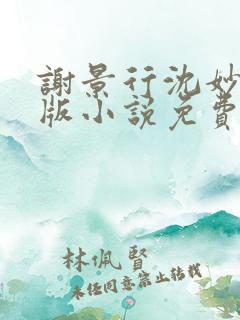 謝景行沈妙
版小説免費
林佩賢
未任同意禁止转载